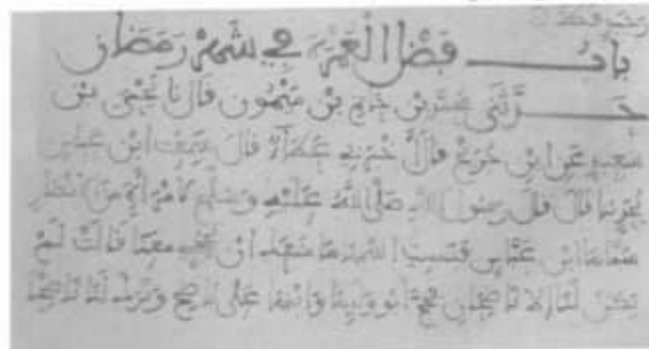 باب فضل العمرة في شهر رمضان
حدثني محمد بن حاتم بن ميمون قال نا يحيى بن
سعيد عن ابن جريج قال أخبرني عطاء قال سمعت ابن عباس
يحدثنا قال قال رسول الله صلى الله عليه وسلم لامرأة من الأنصار
سماها ابن عباس فنسيت اسمها ما منعك أن تحجي معنا قالت لم
يكن لنا إلا ناضحان فحج أبو ولدها وابنها على ناضح وترك لنا ناضحا